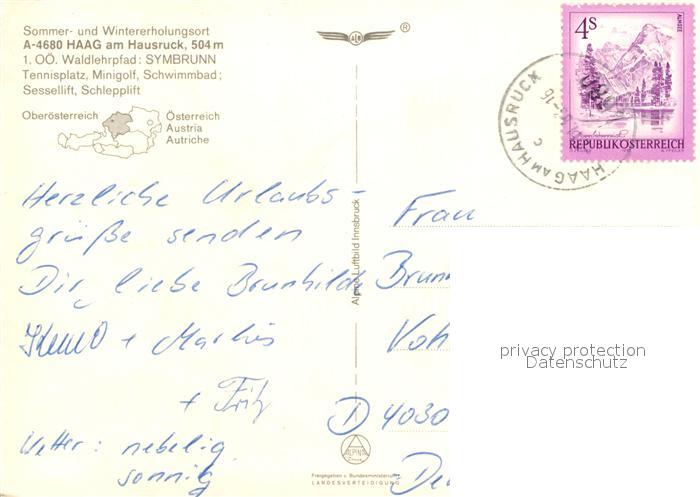 Sommer- und Wintererholungsort
A-4680 HAAG am Hausruck, 504 m
1. OÖ. Waldlehrpfad: SYMBRUNN
Tennisplatz, Minigolf, Schwimmbad;
Sessellift, Schlepplift
Oberösterreich
Österreich
Austria
Autriche
ALR
®
4S
ALMSEE
REPUBLIK ÖSTERREICH
HAAG AM HAUSRUCK
Herzliche Urlaubs-
grüße senden
Dir, liebe Brunhilde
+ Markus
+ Fritz
Wetter: nebelig
sonnig
Alpine Luftbild Innsbruck
Frau
Brun
Voh
D 4030
De
ALPINE
Freigegeben v. Bundesministerium
LANDESVERTEIDIGUNG
privacy protection
Datenschutz